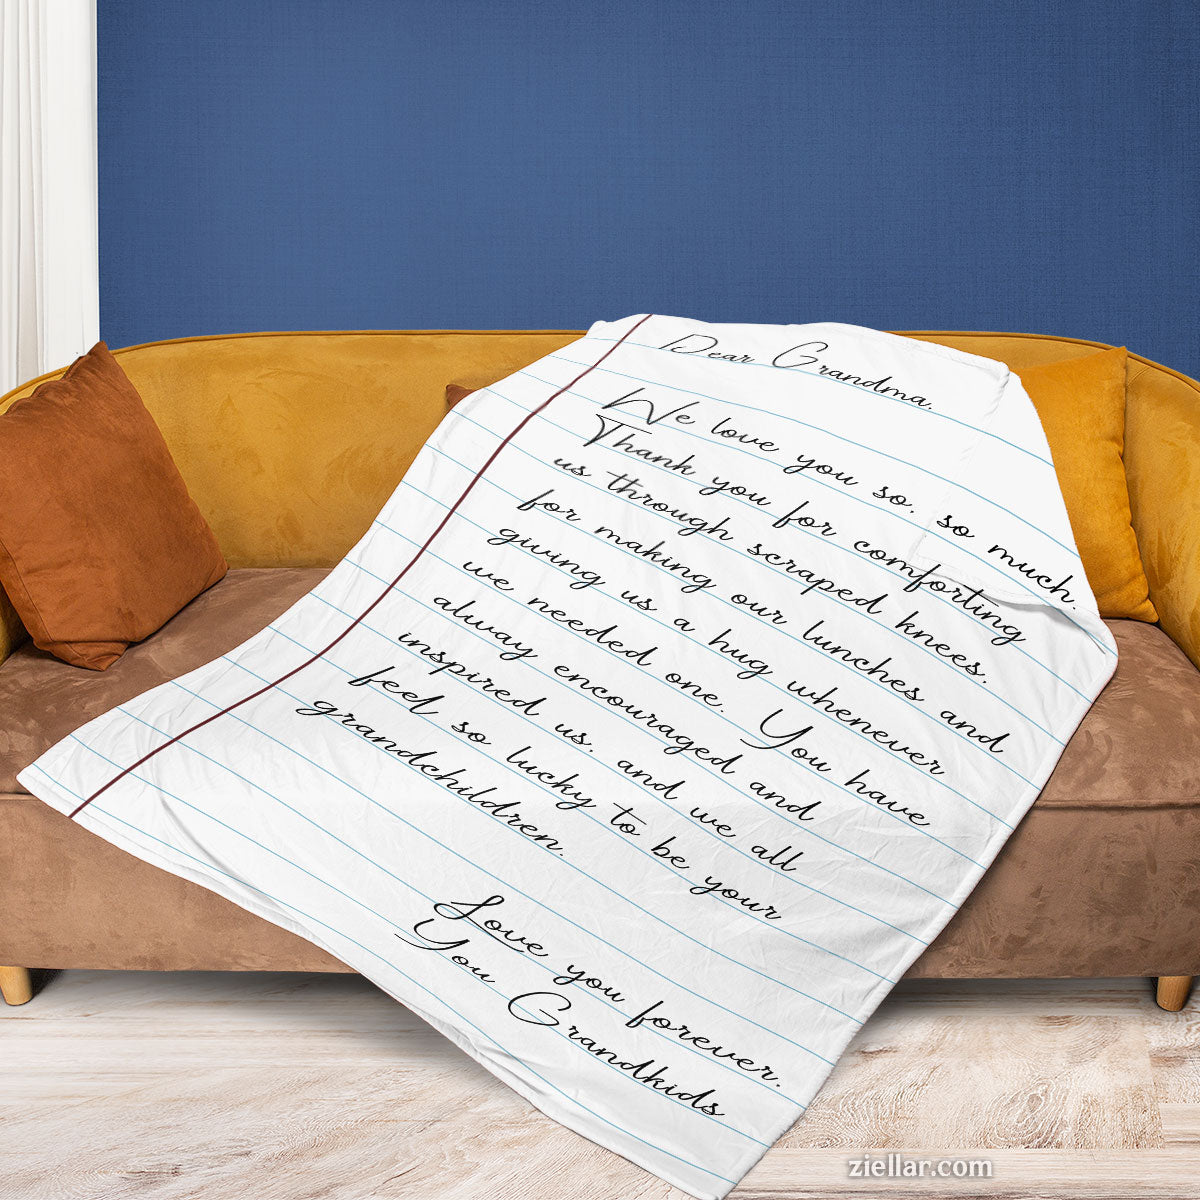 Dear Grandma,
We love you so, so much.
Thank you for comforting
us through scraped knees,
for making our lunches and
giving us a hug whenever
we needed one. You have
alway encouraged and
inspired us, and we all
feel so lucky to be your
grandchildren.
Love you forever,
You Grandkids
ziellar.com